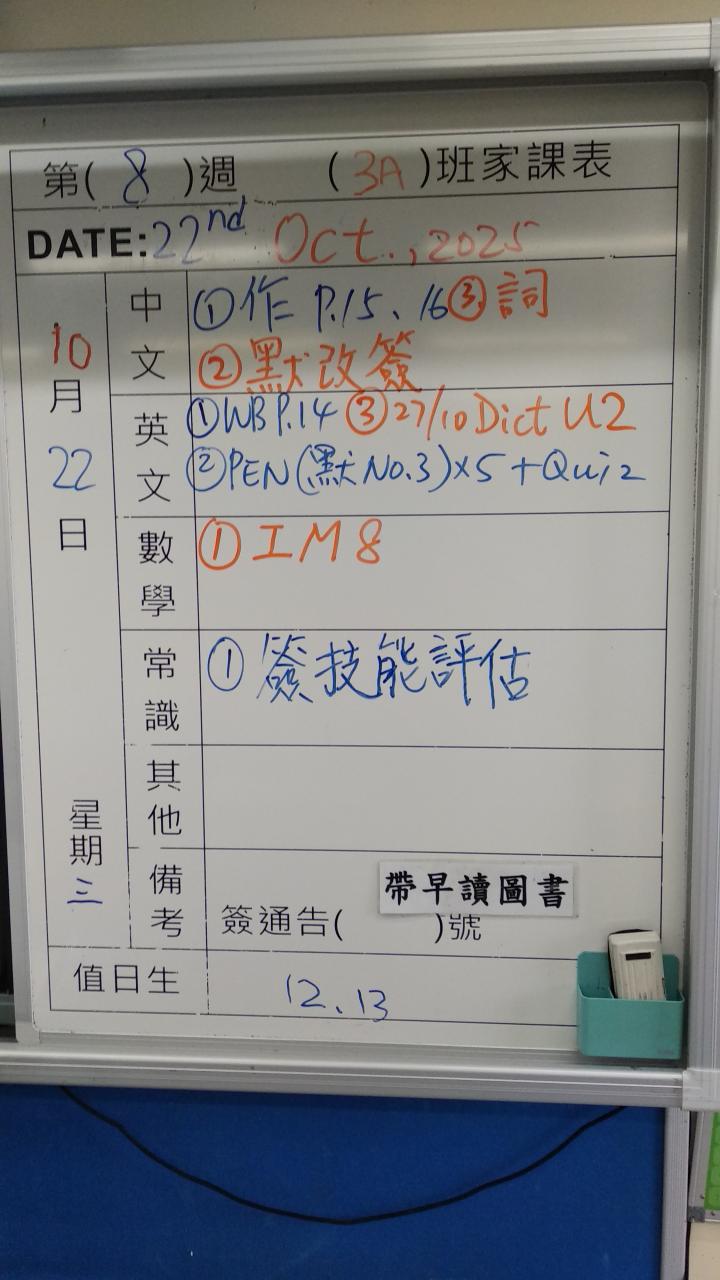 第( 8 )週 (3A)班家課表
DATE: 22nd Oct., 2025
10月22日 星期三
中文 ①作 P.15、16 ③詞
②默改簽
英文 ①WB P.14 ③27/10 Dict U2
②PEN (默 No.3)×5 + Quiz
數學 ①IM8
常識 ①簽技能評估
其他
備考 帶早讀圖書
簽通告( )號
值日生 12、13